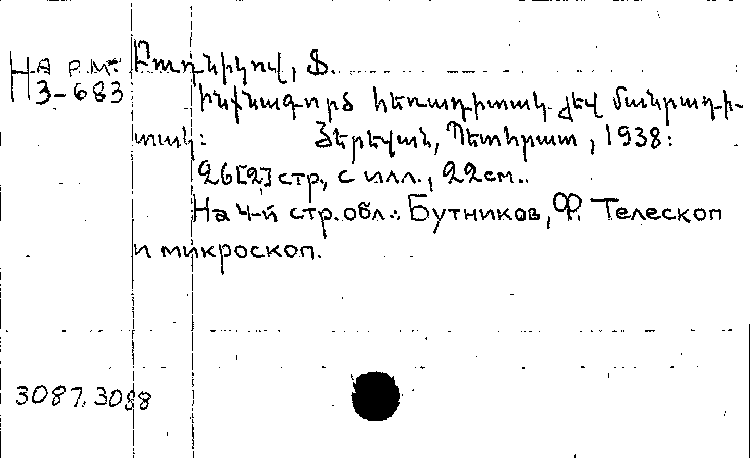 На р.м.
3-683
Բուդնիկով, Ֆ.
Ինքնագործ հեռադիտակ և մանրադի-
տակ: Երևան, Պետհրատ, 1938:
26[2] стр, с илл., 22см..
На 4-й стр. обл.: Бутников, Ф. Телескоп
и микроскоп.
3087, 3088